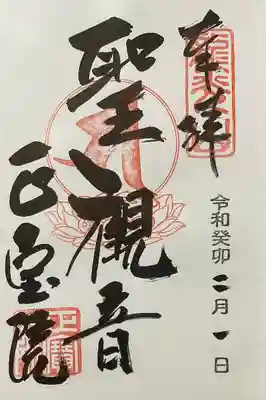 奉拝
令和癸卯 二月一日
聖観音
正宝院